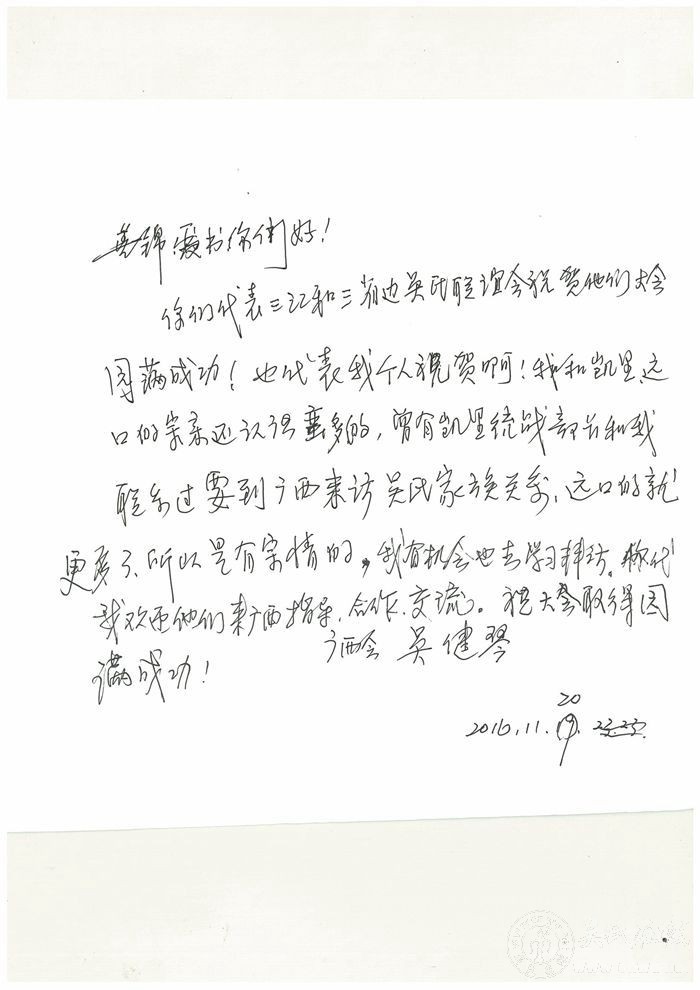 锦霞书你们好！
你们代表三江和三省边吴氏联谊会祝贺他们大会
圆满成功！也代表我个人祝贺啊！我和凯里、远
口的宗亲还认得蛮多的，曾有凯里统战部长和我
联系过要到广西来访吴氏家族关系，远口的就
更多了、所以是有宗情的，我有机会也去学习拜访。你代
我欢迎他们来广西指导、合作、交流。祝大会取得圆
满成功！
广西会 吴健琴
20
2016.11.19.